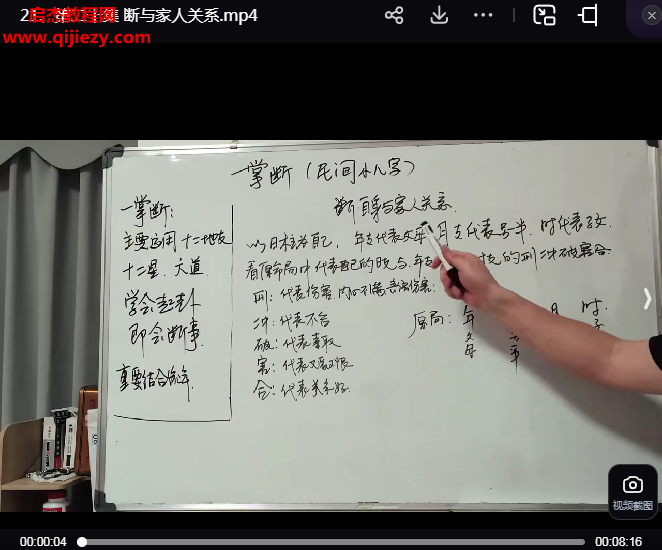 2 集 断与家人关系.mp4
启杰教程网
www.qijiezy.com
一掌断（民间小八字）
断自身与家人关系.
一掌断:
主要运用十二地支
十二星、六道
学会起卦
即会断事.
重要结合流年.
以日柱为自己, 年支代表父母 月支代表兄弟. 时代表子女.
看原命局中代表自己的日支与.年支 时支的刑冲破害合.
刑: 代表伤害.
冲: 代表不合
破: 代表
害: 代表
合: 代表关系好.
原局: 年 月 时
父母
视频截图
00:00:04 00:08:16